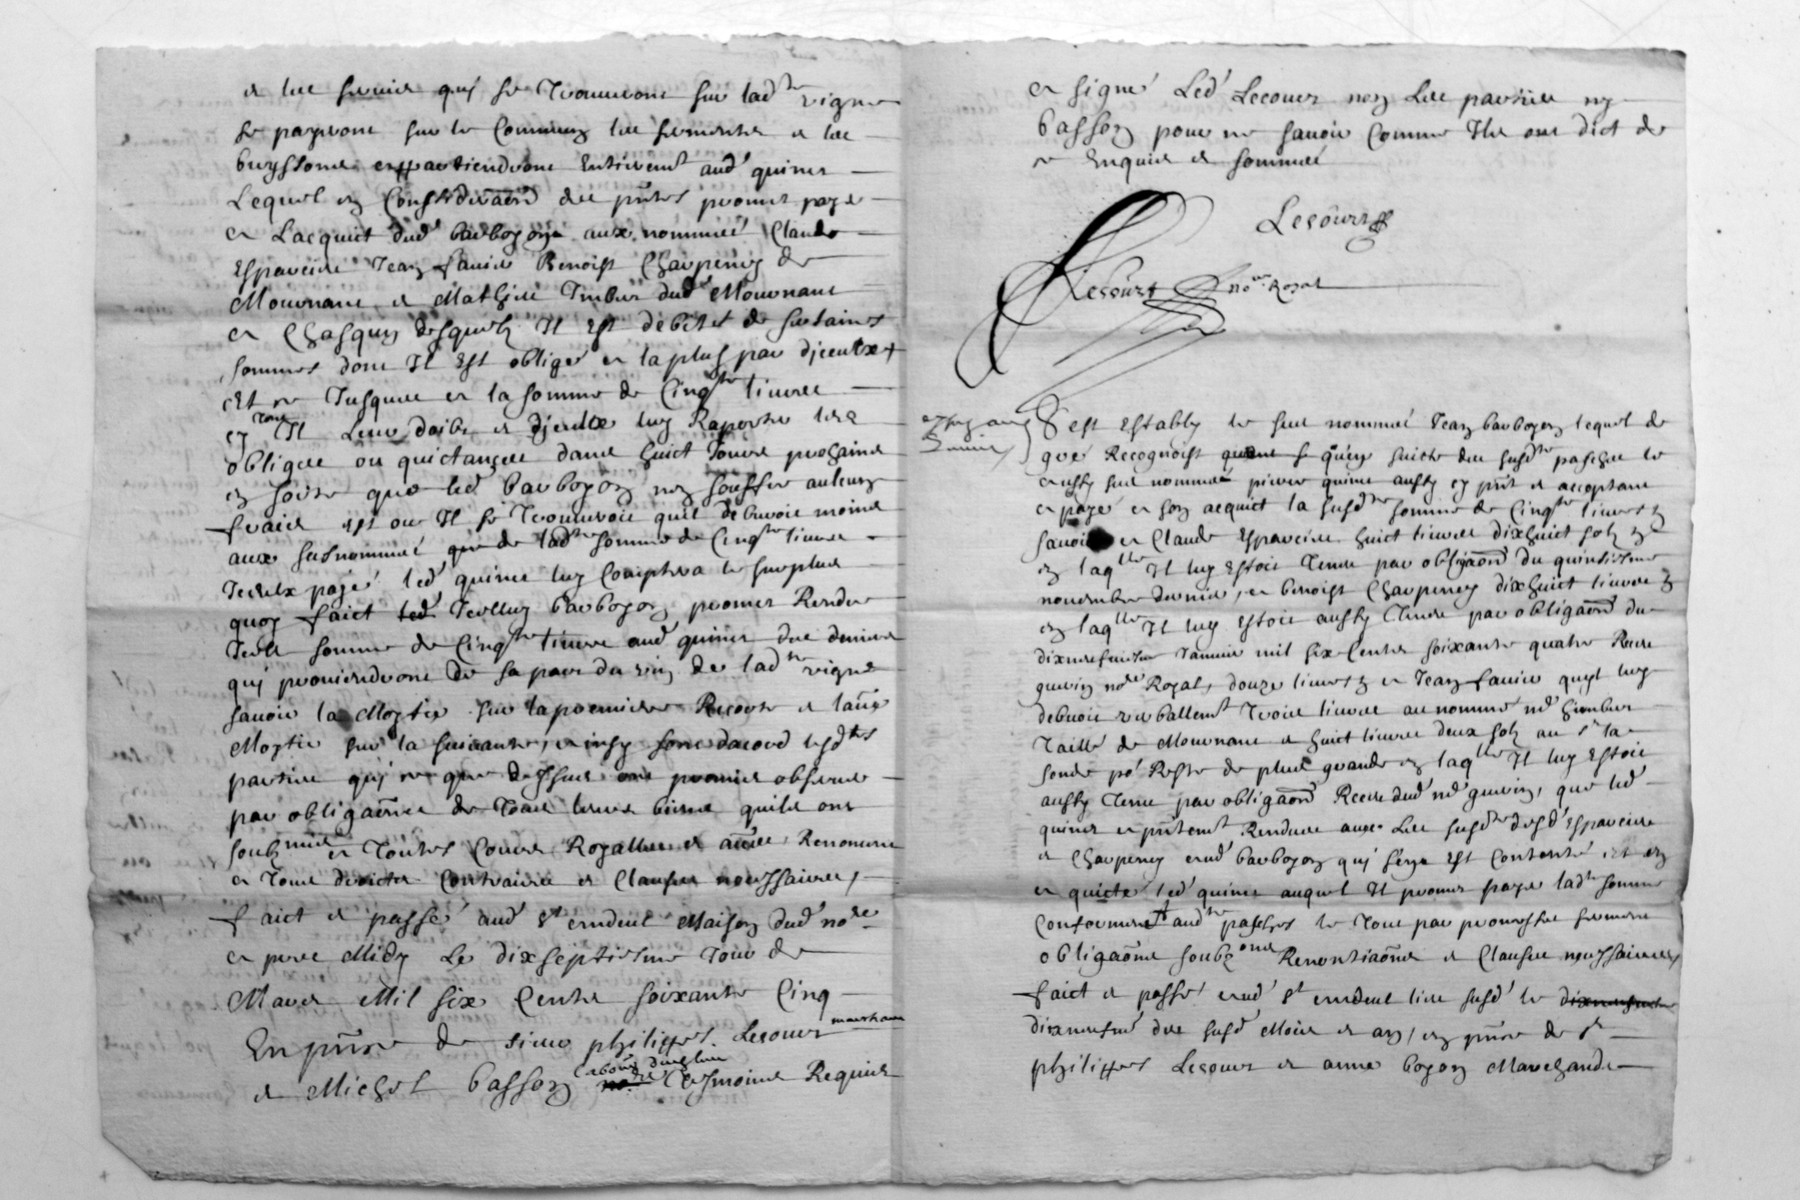 & les serviz quj se trouveront sur lad.te vigne
se payeront sur le commung les sermentes & les
buyssons appartiendront entierem.t aud' quinet
Lequel en Considera͠on des p͠ntes promet paye
a Lacquict dud' barboyon aux nommés Claude
Espaveire Jean favie Benoist Charpenay de
Mournant & Mathieu Imber dud' Mournant
a Chasqung desquelz Il est debiteur de certaines
sommes dont Il Est obligé a la plus par djceulx
Et ce Jusques a la somme de Cinq.te livres
tout Il Leur doibt & djceulx luy Raporter les
obliges ou quictances dans huict Jours prochains
en sorte que led' barboyon nen souffre aulcung
fraict et ou Il se trouveroit quil debvoit moins
aux susnommés que de lad.te somme de Cinq.te livres
Jceulx payé led' quinet luy Comptera le surplus
quoy faict led' Jcelluy barboyon promet Rendre
Jcelle somme de Cinq.te livres aud' quinet des deniers
quj proviendront de sa part du vin de lad.te vigne
savoir la Moytie sur la premiere Recolte & lau͠e
Moytie sur la suivante, ainsy sont dacord lesd.tes
parties quj ce que dessus ont promis observer
par obliga͠ons de tous leurs biens quils ont
soubzmis a toutes Cours Royalles & au͠es Renoncent
a tous droicts Contraires & Clauses necessaires,
faict & passé aud' S.t andeol Maison dud' no.re
apres Midy Le dixseptiesme Jour de
Mars Mil six Centz soixante Cinq
En p͠nce de sieur philippes Lecourt marchant
& Michel basson tesmoins Requis
& signé Led' Lecourt non Les parties ny
basson pour ne savoir Comme Ils ont dict de
ce Enquis & sommés
Lecourt
Lecourt no.re Royal
S'est Estably le sus nommé Jean barboyon lequel de
gré Recognoist quen suicte des susd.tes pasches le
aussy sus nommé pierre quinet aussy cy p͠nt & acceptant
a payé a son acquict la susd.te somme de Cinq.te livres
savoir a Claude Espaveire huict livres dixhuict solz
en laq.lle Il luy Estoit tenu par obliga͠on du quinziesme
novembre dernier, a benoist Charpenay dixhuict livres
en laq.lle Il luy Estoit aussy tenu par obliga͠on du
dixneufviesme Janvier mil six Centz soixante quatre Receu
guerin no.re Royal, douze livres a Jean favie quyl luy
debvoit verballem.t trois livres au nommé
taille de Mournant & huict livres deux solz au s.r la
sonde po.r Reste de plus grande en laq.lle Il luy Estoit
aussy tenu par obliga͠on Receu dud' no.re guerin, que led'
quinet a p͠ntem.t Rendues avec Les susd.tes desd' Espaveire
& Charpenay aud' barboyon quj s'en Est Contenté
a quicté led' quinet auquel Il promet paye lad.te somme
Conformem.t aud.tes pasches le tout par promesse serment
obliga͠ons soubz.ons Renontia͠ons & Clauses necessaires,
faict & passé aud' S.t andeol lieu susd' le dixneufviesme
dixneufv.e des susd' Mois & an, en p͠nce de s.r
philippes Lecourt & anne boyon Marchande